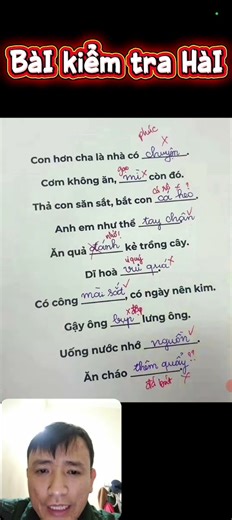 BàI kiểm tra HàI
phúc
Con hơn cha là nhà có chuyện.
gạo
Cơm không ăn, mì còn đó.
cá rô ?
Thả con săn sắt, bắt con cá heo.
Anh em như thể tay chân
nhớ!
Ăn quả đánh kẻ trồng cây.
quý
Dĩ hoà vui quá
Có công mài sắt, có ngày nên kim.
đập
Gậy ông bụp lưng ông.
Uống nước nhớ nguồn.
Ăn cháo thêm quẩy ?!
đá bát